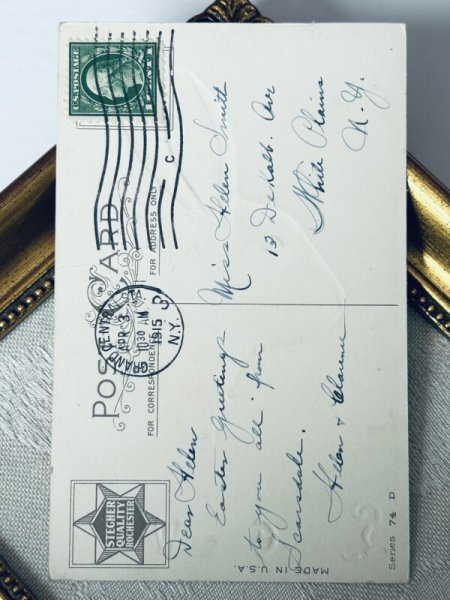 U.S. POSTAGE
1 CENT 1
POST CARD
GRAND CENTRAL
APR 3
1030 AM
1915
N.Y.
3
C
FOR CORRESPONDENCE
FOR ADDRESS ONLY
Dear Helen
Easter Greetings
to you all from
Scarsdale.
Helen & Clarence
Miss Helen Smith
13 DeKalb. Ave
White Plains
N.Y.
STECHER
QUALITY
ROCHESTER
MADE IN U.S.A.
Series 74 D